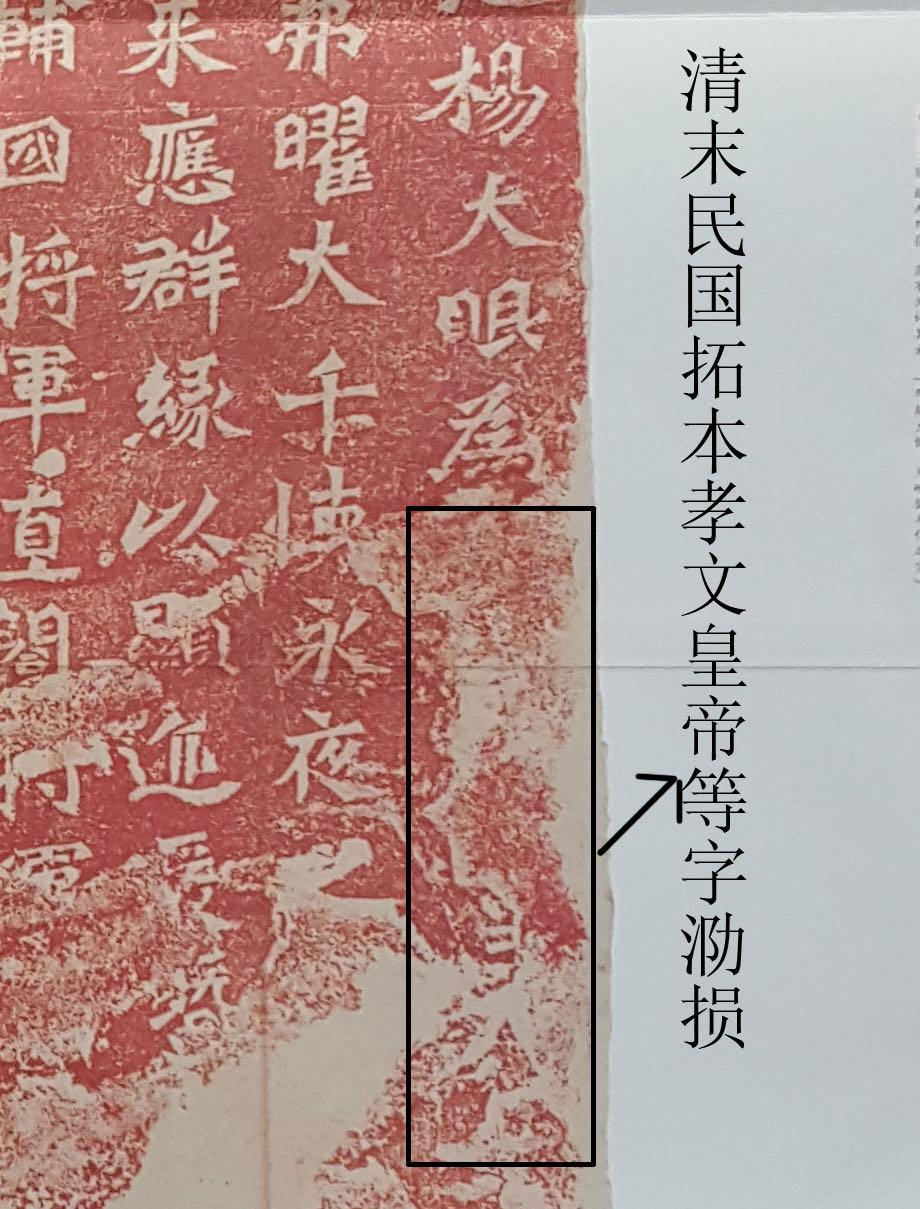 清末民国拓本孝文皇帝等字泐损
楊大眼為
弗曜大千懷永夜之
来應群緣以顯迹爰
輔國將軍直閤將軍